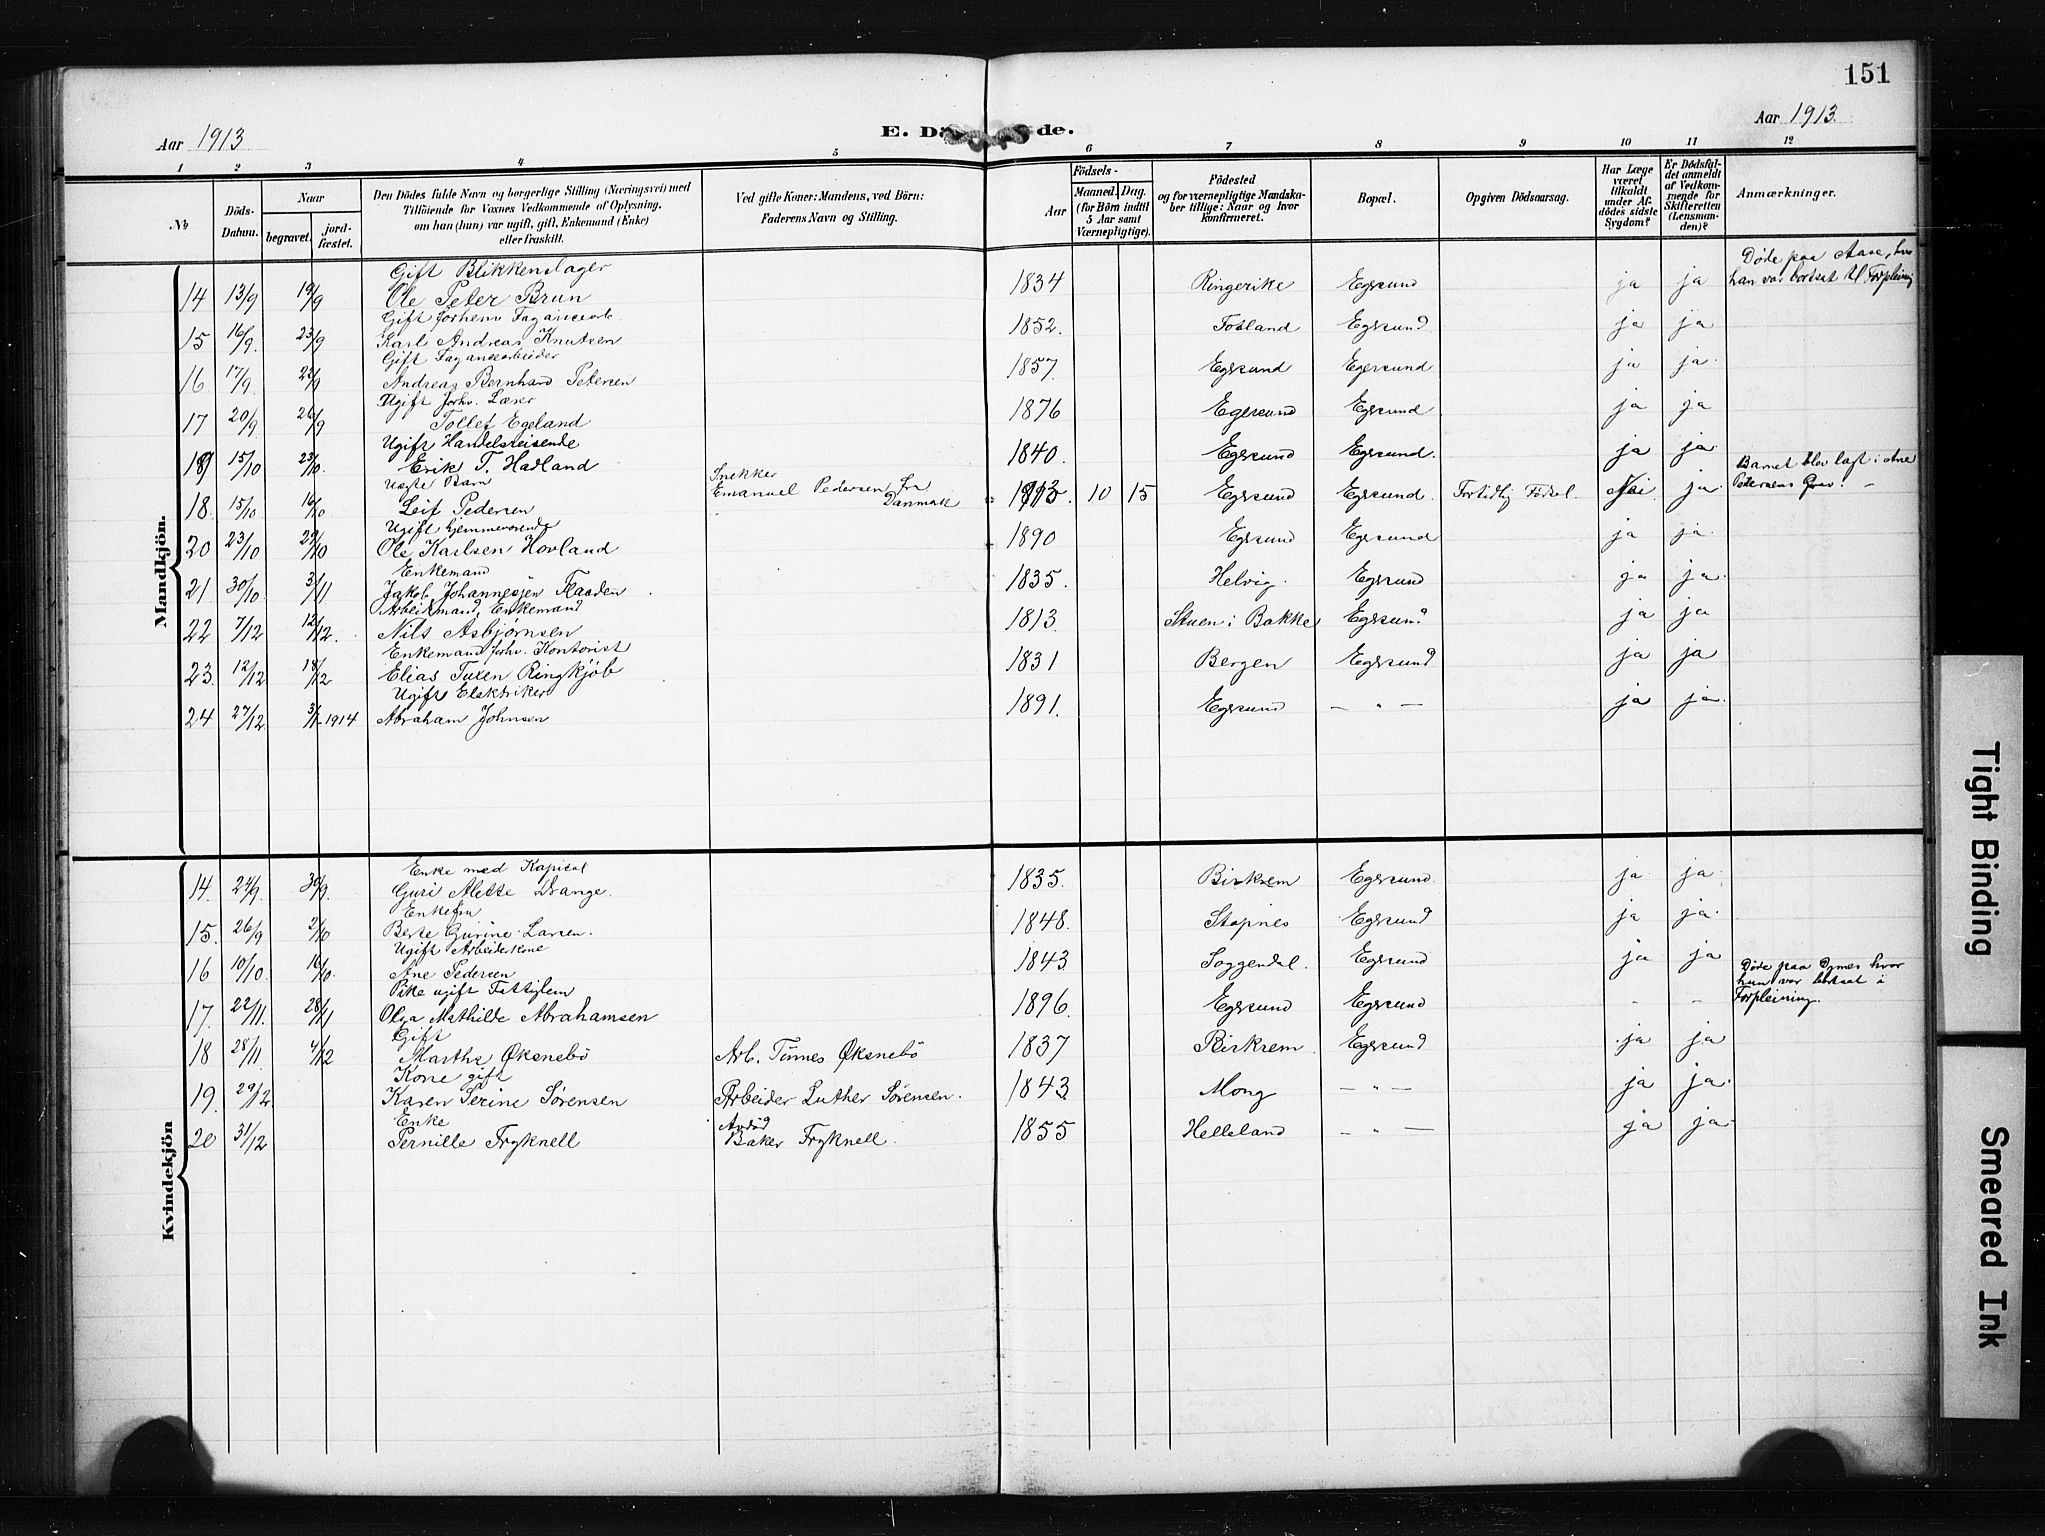 151
Aar 1913
E. Dö de.
Aar 1913.
1 2 3 4 5 6 7 8 9 10 11 12
№
Döds-Datum.
Naar
begravet.
jord-fæstet.
Den Dödes fulde Navn og borgerlige Stilling (Næringsvei) med
Tilföiende for Voxnes Vedkommende af Oplysning,
om han (hun) var ugift, gift, Enkemand (Enke)
eller fraskilt.
Ved gifte Koner: Mandens, ved Börn:
Faderens Navn og Stilling.
Födsels-
Aar
Maaned. Dag.
(for Börn indtil
5 Aar samt
Værnepligtige).
Födested
og for værnepligtige Mandska-
ber tillige: Naar og hvor
konfirmeret.
Bopæl.
Opgiven Dödsaarsag.
Har Læge
været
tilkaldt
under Af-
dödes sidste
Sygdom?
Er Dödsfal-
det anmeldt
af Vedkom-
mende for
Skifteretten
(Lensman-
den)?
Anmærkninger.
Mandkjön.
Gift Blikkenslager
14 13/9 19/9 Ole Peter Brun 1834 Ringerike Egersund ja ja Døde paa Aase, hvor
han var bortsat til Forpleining
Gift forhenv. Fayancearb.
15 16/9. 23/9 Karl Andreas Knutsen 1852. Fotland Egersund ja ja
Gift Fayancearbeider
16 17/9. 22/9 Andreas Bernhard Petersen 1857. Egersund Egersund ja ja.
Ugift forhv. Læser
17 20/9. 26/9 Tollef Egeland 1876 Egersund Egersund ja ja
Ugift Handelsreisende
19 15/10 23/10. Erik T. Hadland 1840. Egersund Egersund. ja ja
Uægte Barn
18. 15/10 16/10 Leif Pedersen Snekker
Emanuel Pedersen fra
Danmark 1913. 10 15 Egersund Egersund. Fortidlig Fødsel. Nei ja Barnet blev lagt i Ane
Pedersens Grav. —
Ugift hjemmeværende
20 23/10 29/10 Ole Karlsen Hovland 1890 Egersund Egersund ja ja.
Enkemand
21 30/10 3/11 Jakob Johannessen Flaaden 1835. Helvig. Egersund ja ja.
Arbeidsmand, Enkemand
22 7/12 12/12. Nils Asbjørnsen 1813. Stuen i Bakke Egersund ja ja
Enkemand forhv. Kontorist
23. 12/12 18/12 Elias Tuxen Ringkjöb 1831 Bergen Egersund ja ja
Ugift Elektriker
24 27/12. 3/1-1914 Abraham Johnsen 1891. Egersund — " — ja ja.
Kvindekjön
Enke med Kapital
14. 24/9. 30/9. Guri Alette Drange. 1835. Birkrem Egersund. ja ja
Enkefru
15. 26/9 2/10 Berte Gurine Larsen. 1848. Stapnes Egersund ja ja.
Ugift Arbeiderkone
16 10/10. 16/10. Ane Pedersen 1843 Soggendal. Egersund ja ja
Pike ugift Fattiglem
17. 22/11. 28/11 Olga Mathilde Abrahamsen 1896. Egersund Egersund - - Døde paa Dymes hvor
hun var bortsat i
Forpleining.
Gift
18 28/11. 4/12 Marthe Øksnebö Arb. Tönnes Øksnebö 1837 Birkrem. Egersund ja ja
Kone gift
19. 29/12. Karen Serine Sørensen Arbeider Luther Sørensen. 1843 Mong — " — ja ja.
Enke
20 31/12 Pernille Fryknell Avdöd
Baker Fryknell. 1855 Helleland — " — ja ja.
Tight Binding
Smeared Ink